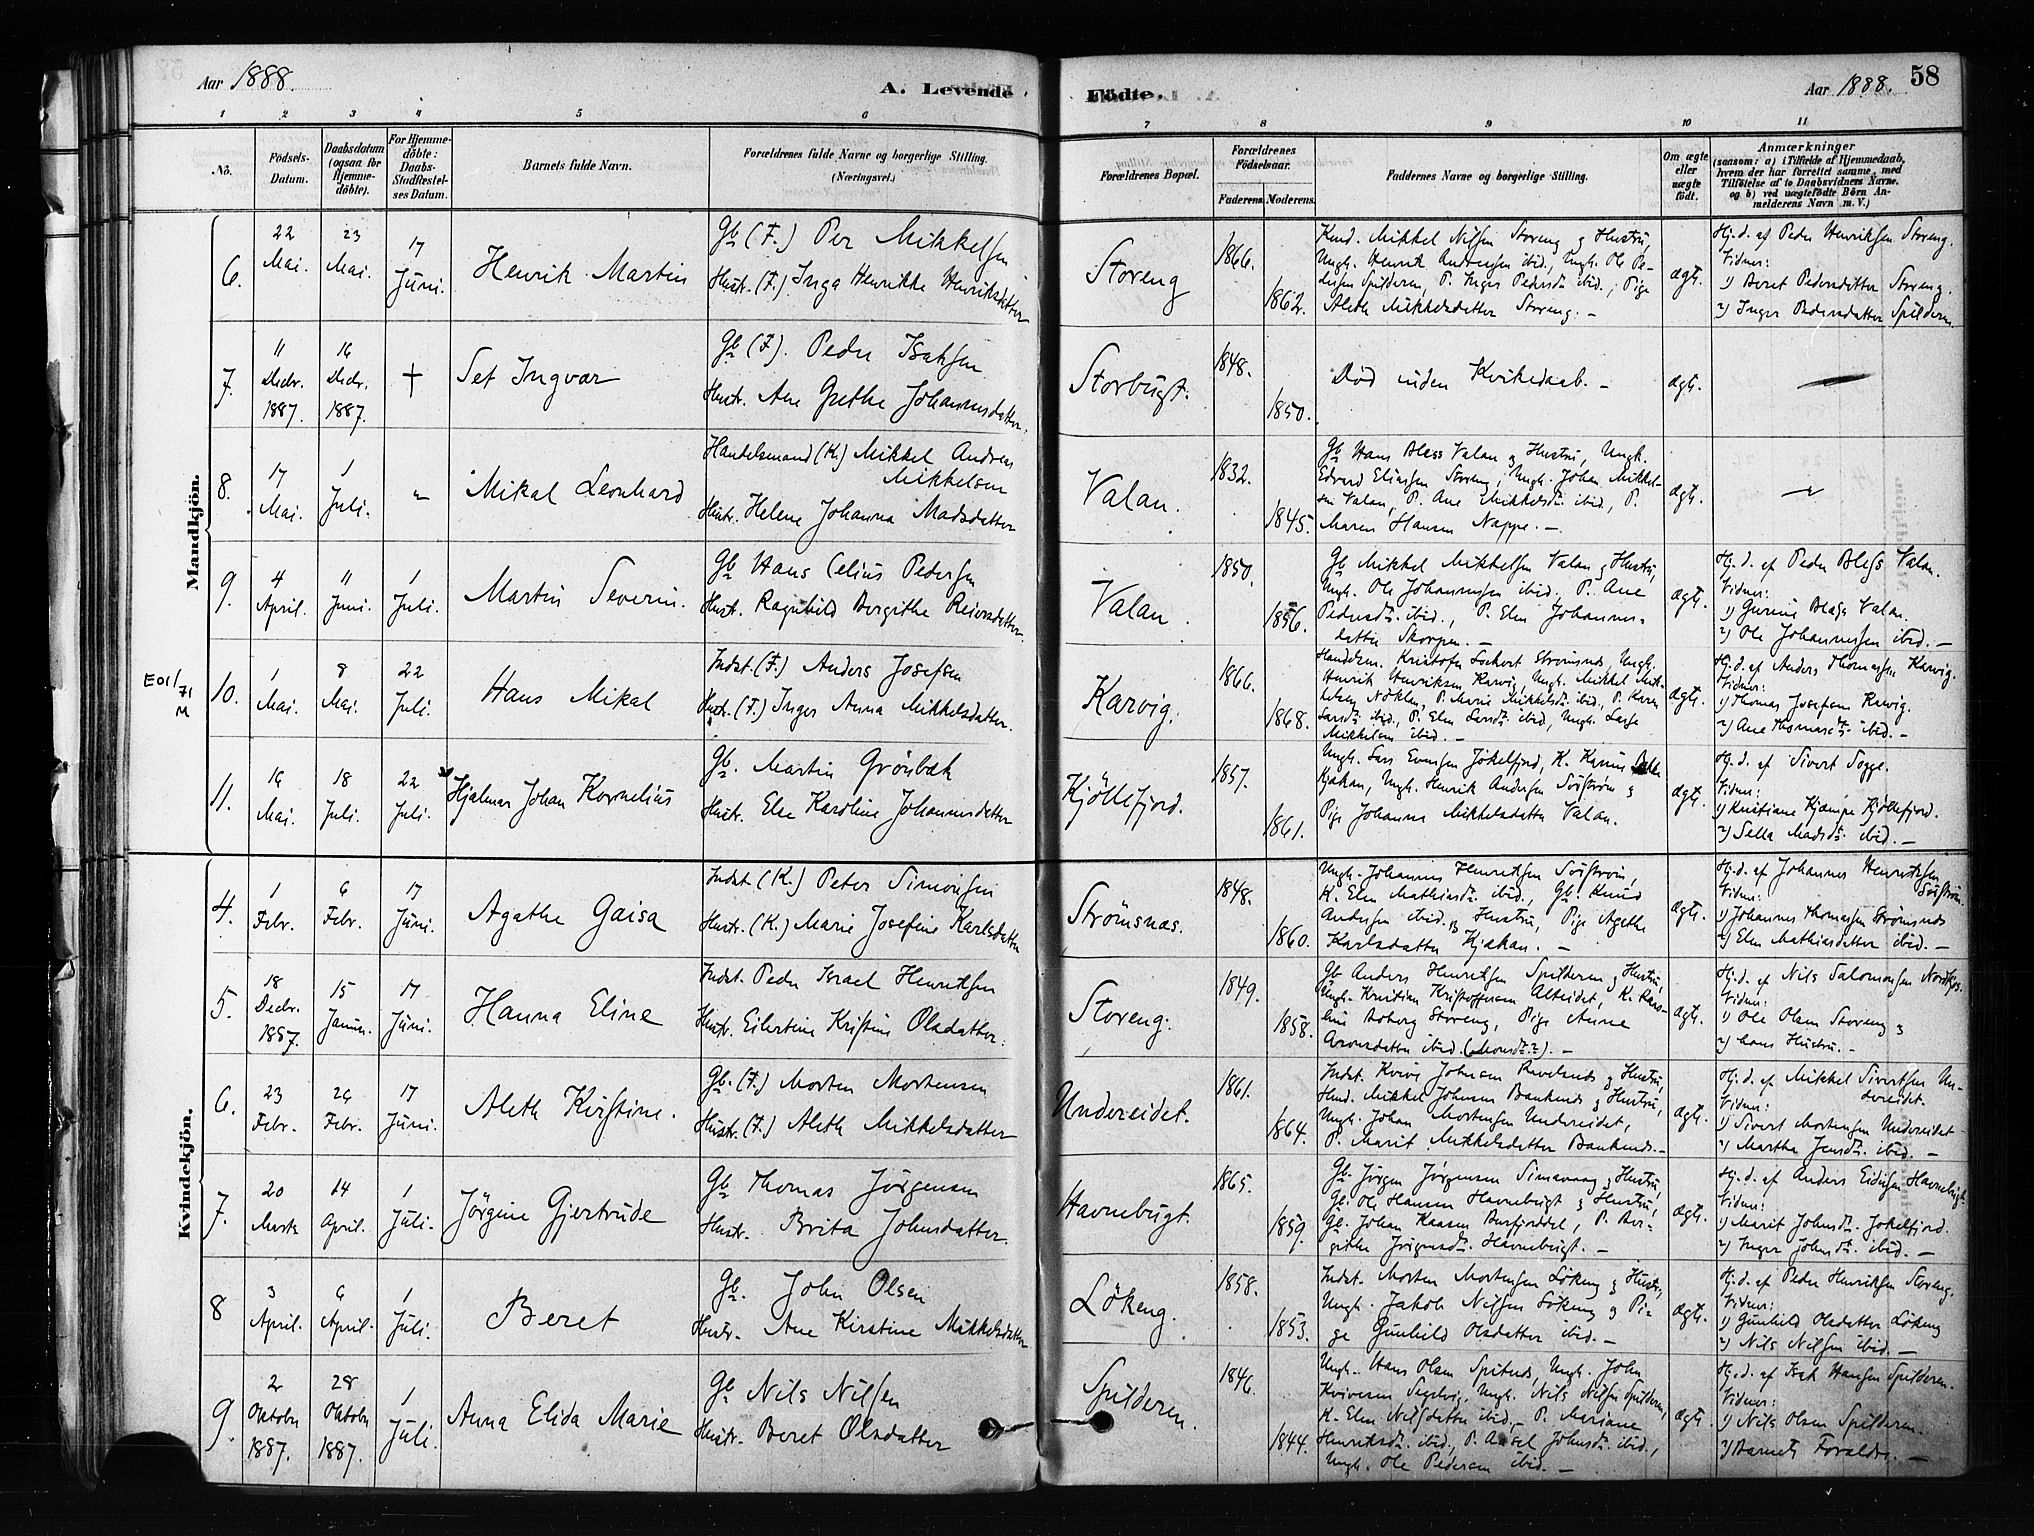 Aar 1888.
A. Levende Födte.
Aar 1888.
58
1 2 3 4 5 6 7 8 9 10 11
No.
Födsels-Datum.
Daabsdatum (ogsaa for Hjemme-döbte).
For Hjemme-döbte: Daabs-Stadfæstel-ses Datum.
Barnets fulde Navn.
Forældrenes fulde Navne og borgerlige Stilling. (Næringsvei.)
Forældrenes Bopæl.
Forældrenes Födselsaar.
Faderens. Moderens.
Faddernes Navne og borgerlige Stilling.
Om ægte eller uægte födt.
Anmærkninger
(saasom: a) i Tilfælde af Hjemmedaab,
hvem der har forrettet samme, med
Tilföielse af to Daabsvidners Navne,
og b) ved uægtefödte Börn An-
melderens Navn m. V.)
Mandkjön.
6. 22 Mai. 23 Mai. 17 Juni.
Henrik Martin
Gb (F.) Per Mikkelsen
Hustr. (F.) Inga Henrikke Henriksdatter
Storeng
1866.
1862.
Kmd. Mikkel Nilsen Storeng og Hustru,
Ungk. Henrik Andersen ibid., Ungk. Ole Pe-
dersen Spilderen, P. Inger Pedersdr. ibid., Pige
Aleth Mikkelsdatter Storeng. –
ægt.
Hj.d. af Peder Henriksen Storeng.
Vidner:
1) Beret Pedersdatter Storeng.
2) Inger Pedersdatter Spilderen
7. 11 Decbr. 1887. 16 Decbr. 1887. †
Set Ingvar
Gb (F). Peder Isaksen
Hustr. Ane Grethe Johannesdatter.
Storbugt.
1848.
1850.
Död uden Kirkedaab. –
ægt.
–
8. 17 Mai. 1 Juli. "
Mikal Leonhard
Handelsmand (K.) Mikkel Andreas
Mikkelsen
Hustr. Helene Johanna Madsdatter
Valan.
1832.
1845.
Gb Hans Bless Valan og Hustru, Ungk.
Edvard Eliassen Storeng, Ungk. Johan Mikkel-
sen Valan, P. Ane Mikkelsdr. ibid., P.
Maren Hansen Nappe. –
ægt.
–
9. 4 April. 11 Juni. 1 Juli.
Martin Severin.
Gb Hans Celius Pedersen
Hustr. Ragnhild Bergithe Reiersdatter.
Valan.
1850.
1856.
Gb Mikkel Mikkelsen Valan og Hustru,
Ungk. Ole Johannessen ibid., P. Ane
Pedersdr. ibid., P. Elen Johannes-
datter Skorpen. –
ægt.
Hj.d. af Peder Bless Valan.
Vidner:
1) Gurine Bless Valan.
2) Ole Johannessen ibid. –
E01/71 M
10. 1 Mai. 8 Mai. 22 Juli.
Hans Mikal
Indst. (F.) Anders Josefsen
Hustr. (F.) Inger Anna Mikkelsdatter.
Karvig.
1866.
1868.
Handelsm. Kristofer Lockert Strömsnes, Ungk.
Henrik Henriksen Karvig, Ungk. Mikkel Mik-
kelsen Nöklan, P. Marie Mikkelsdr. ibid., P. Karen
Larsdr. ibid., P. Elen Larsdr. ibid., Ungk. Lasse
Mikkelsen ibid. –
ægt.
Hj.d. af Anders Thomassen Karvig.
Vidner:
1) Thomas Josefsen Karvig.
2) Ane Thomasdr. ibid. –
11. 16 Mai. 18 Juli. 22 Juli.
Hjalmar Johan Kornelius
Gb. Martin Grönbek
Hustr. Else Karoline Johannesdatter
Kjöllefjord.
1857.
1861.
Ungk. Lars Evensen Jökelfjord, K. Karine
Kjækan, Ungk. Henrik Andersen Sörström og
Pige Johanna Mikkelsdatter Valan.
ægt.
Hj.d. af Sivert Sogge.
Vidner:
1) Kristiane Kjempe Kjöllefjord.
2) Sella Madsdr. ibid. –
Kvindekjön.
4. 1 Febr. 6 Febr. 17 Juni.
Agathe Gaisa
Indst. (K.) Peter Simonsen
Hustr. (K.) Marie Josefine Karlsdatter
Strömsnæs.
1848.
1860.
Ungk. Johannes Henriksen Sörström,
K. Elen Mathiasdr. ibid., Gb. Knud
Andersen ibid. og Hustru, Pige Agethe
Karlsdatter Kjækan. –
ægt.
Hj.d. af Johannes Henriksen
Sörström.
Vidner:
1) Johannes Thomassen Strömsnes
2) Elen Mathiasdatter ibid. –
5. 18 Decbr. 1887. 15 Januar. 17 Juni.
Hanna Eline
Indst. Peder Israel Henriksen
Hustr. Eilertine Kristine Olsdatter.
Storeng.
1849.
1858.
Gb Anders Henriksen Spilderen og Hustru,
Ungk. Kristian Kristoffersen Alteidet, K. Karo-
line Aaberg Storeng, Pige Anne
Aronsdatter ibid. (Monsdr.?). –
ægt.
Hj.d. af Nils Salomonsen Nordkjos.
Vidner:
1) Ole Olsen Storeng og
2) hans Hustru. –
6. 23 Febr. 26 Febr. 17 Juni.
Aleth Kirstine.
Gb. (F.) Morten Mortensen
Hustr. (F.) Aleth Mikkelsdatter
Undereidet.
1861.
1864.
Hmd. Mikkel Johnsen Bankenes og Hustru,
Ungk. Johan Mortensen Undereidet,
P. Marit Mikkelsdatter Bankenes. –
ægt.
Hj.d. af Mikkel Sivertsen Un-
dereidet.
Vidner:
1) Sivert Mortensen Undereidet
2) Martha Jensdr. ibid. –
7. 20 Marts 14 April. 1 Juli.
Jörgine Gjertrude
Gb Thomas Jörgensen
Hustr. Brita Johnsdatter.
Havnebugt.
1865.
1859.
Gb. Jörgen Jörgensen Simavaag og Hustru,
Gb. Ole Hansen Havnebugt og Hustru,
Gb. Johan Kaasen Burfjorddel, P. Ber-
githe Jörgensdr. Havnebugt. –
ægt.
Hj.d. af Anders Eidissen Havnebugt.
Vidner:
1) Marit Johnsdr. Jökelfjord.
2) Inger Johnsdr. ibid. –
8 3 April. 6 April. 1 Juli.
Beret
Gb. John Olsen
Hustr. Ane Kirstine Mikkelsdatter
Lökeng.
1858.
1853.
Indst. Morten Mortensen Lökeng og Hustru,
Ungk. Jakob Nilsen Lökeng og Pi-
ge Gunhild Olsdatter ibid. –
ægt.
Hj.d. af Peder Henriksen Storeng.
Vidner:
1) Gunhild Olsdatter Lökeng
2) Nils Nilsen ibid. –
9. 2 Oktober 1887. 28 Oktober 1887. 1 Juli.
Anna Elida Marie
Gb Nils Nilsen
Hustr. Beret Olsdatter
Spilderen.
1846.
1844.
Ungk. Hans Olsen Spitnes, Ungk. John
Kvivesen Segelvig, Ungk. Nils Nilsen Spilderen,
K. Elen Nilsdatter ibid., P. Mariane
Henriksdr. ibid., P. Johnsdr. ibid.,
Ungk. Ole Pedersen ibid. –
ægt.
Hj.d. af Isak Hansen Spilderen.
Vidner:
1) Nils Olsen Spilderen.
2) Barnets Forældre. –